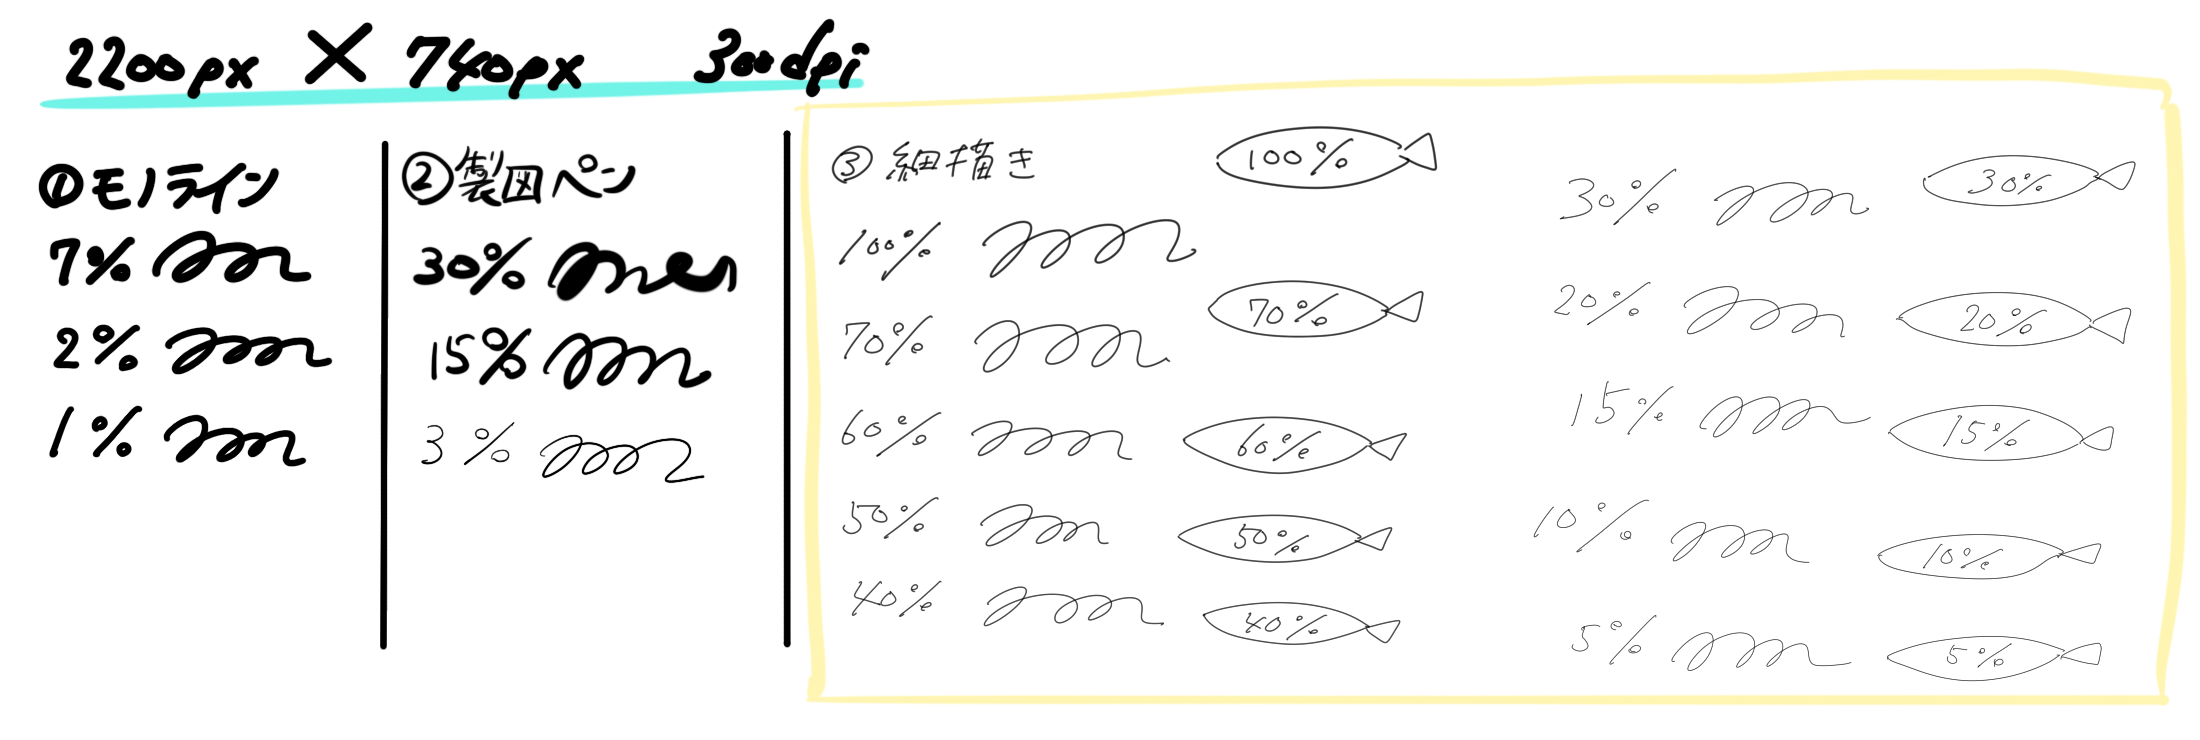 2200px × 740px 300dpi
①モノライン
7%
2%
1%
②製図ペン
30%
15%
3%
③細描き
100%
100%
70%
70%
60%
60%
50%
50%
40%
40%
30%
30%
20%
20%
15%
15%
10%
10%
5%
5%